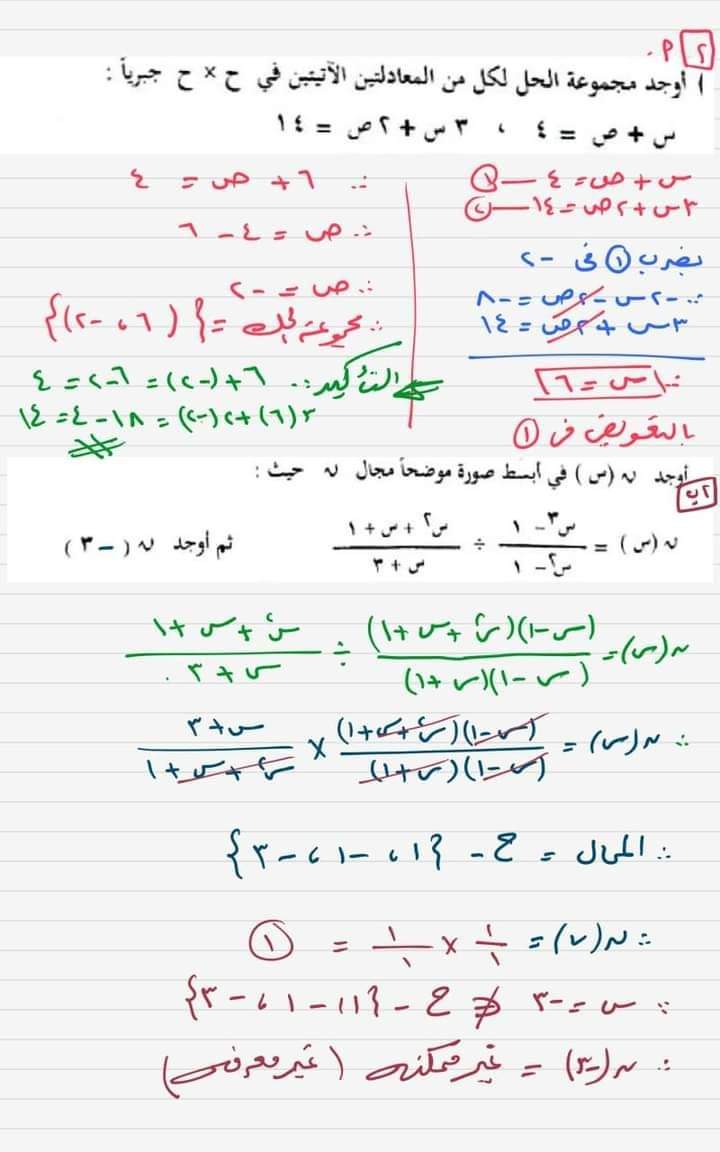 ٢ م.
أ أوجد مجموعة الحل لكل من المعادلتين الآتيتين في ح × ح جبرياً :
س + ص = ٤ ، ٣ س + ٢ ص = ١٤
س + ص = ٤ — ①
٣س + ٢ص = ١٤ — ②
بضرب ① فى -٢
∴ -٢س - ٢ص = -٨
٣س + ٢ص = ١٤
∴ س = ٦
بالتعويض فى ①
∴ ٦ + ص = ٤
∴ ص = ٤ - ٦
∴ ص = -٢
∴ مجموعة الحل = {(٦ ، -٢)}
التأكيد: ∴ ٦ + (-٢) = ٦ - ٢ = ٤
٣(٦) + ٢(-٢) = ١٨ - ٤ = ١٤
٢ب
أوجد ن (س) في أبسط صورة موضحاً مجال ن حيث :
ن (س) = (س٣ - ١)/(س٢ - ١) ÷ (س٢ + س + ١)/(س + ٣) ثم أوجد ن (-٣)
ن(س) = (س-١)(س٢+س+١)/(س-١)(س+١) ÷ (س٢+س+١)/(س+٣)
∴ ن(س) = (س-١)(س٢+س+١)/(س-١)(س+١) × (س+٣)/(س٢+س+١)
∴ المجال = ح - {١ ، -١ ، -٣}
∴ ن(س) = ١/١ × ١/١ = ①
∵ س = -٣ ∉ ح - {١ ، -١ ، -٣}
∴ ن(-٣) = غير ممكنة (غير معرفة)